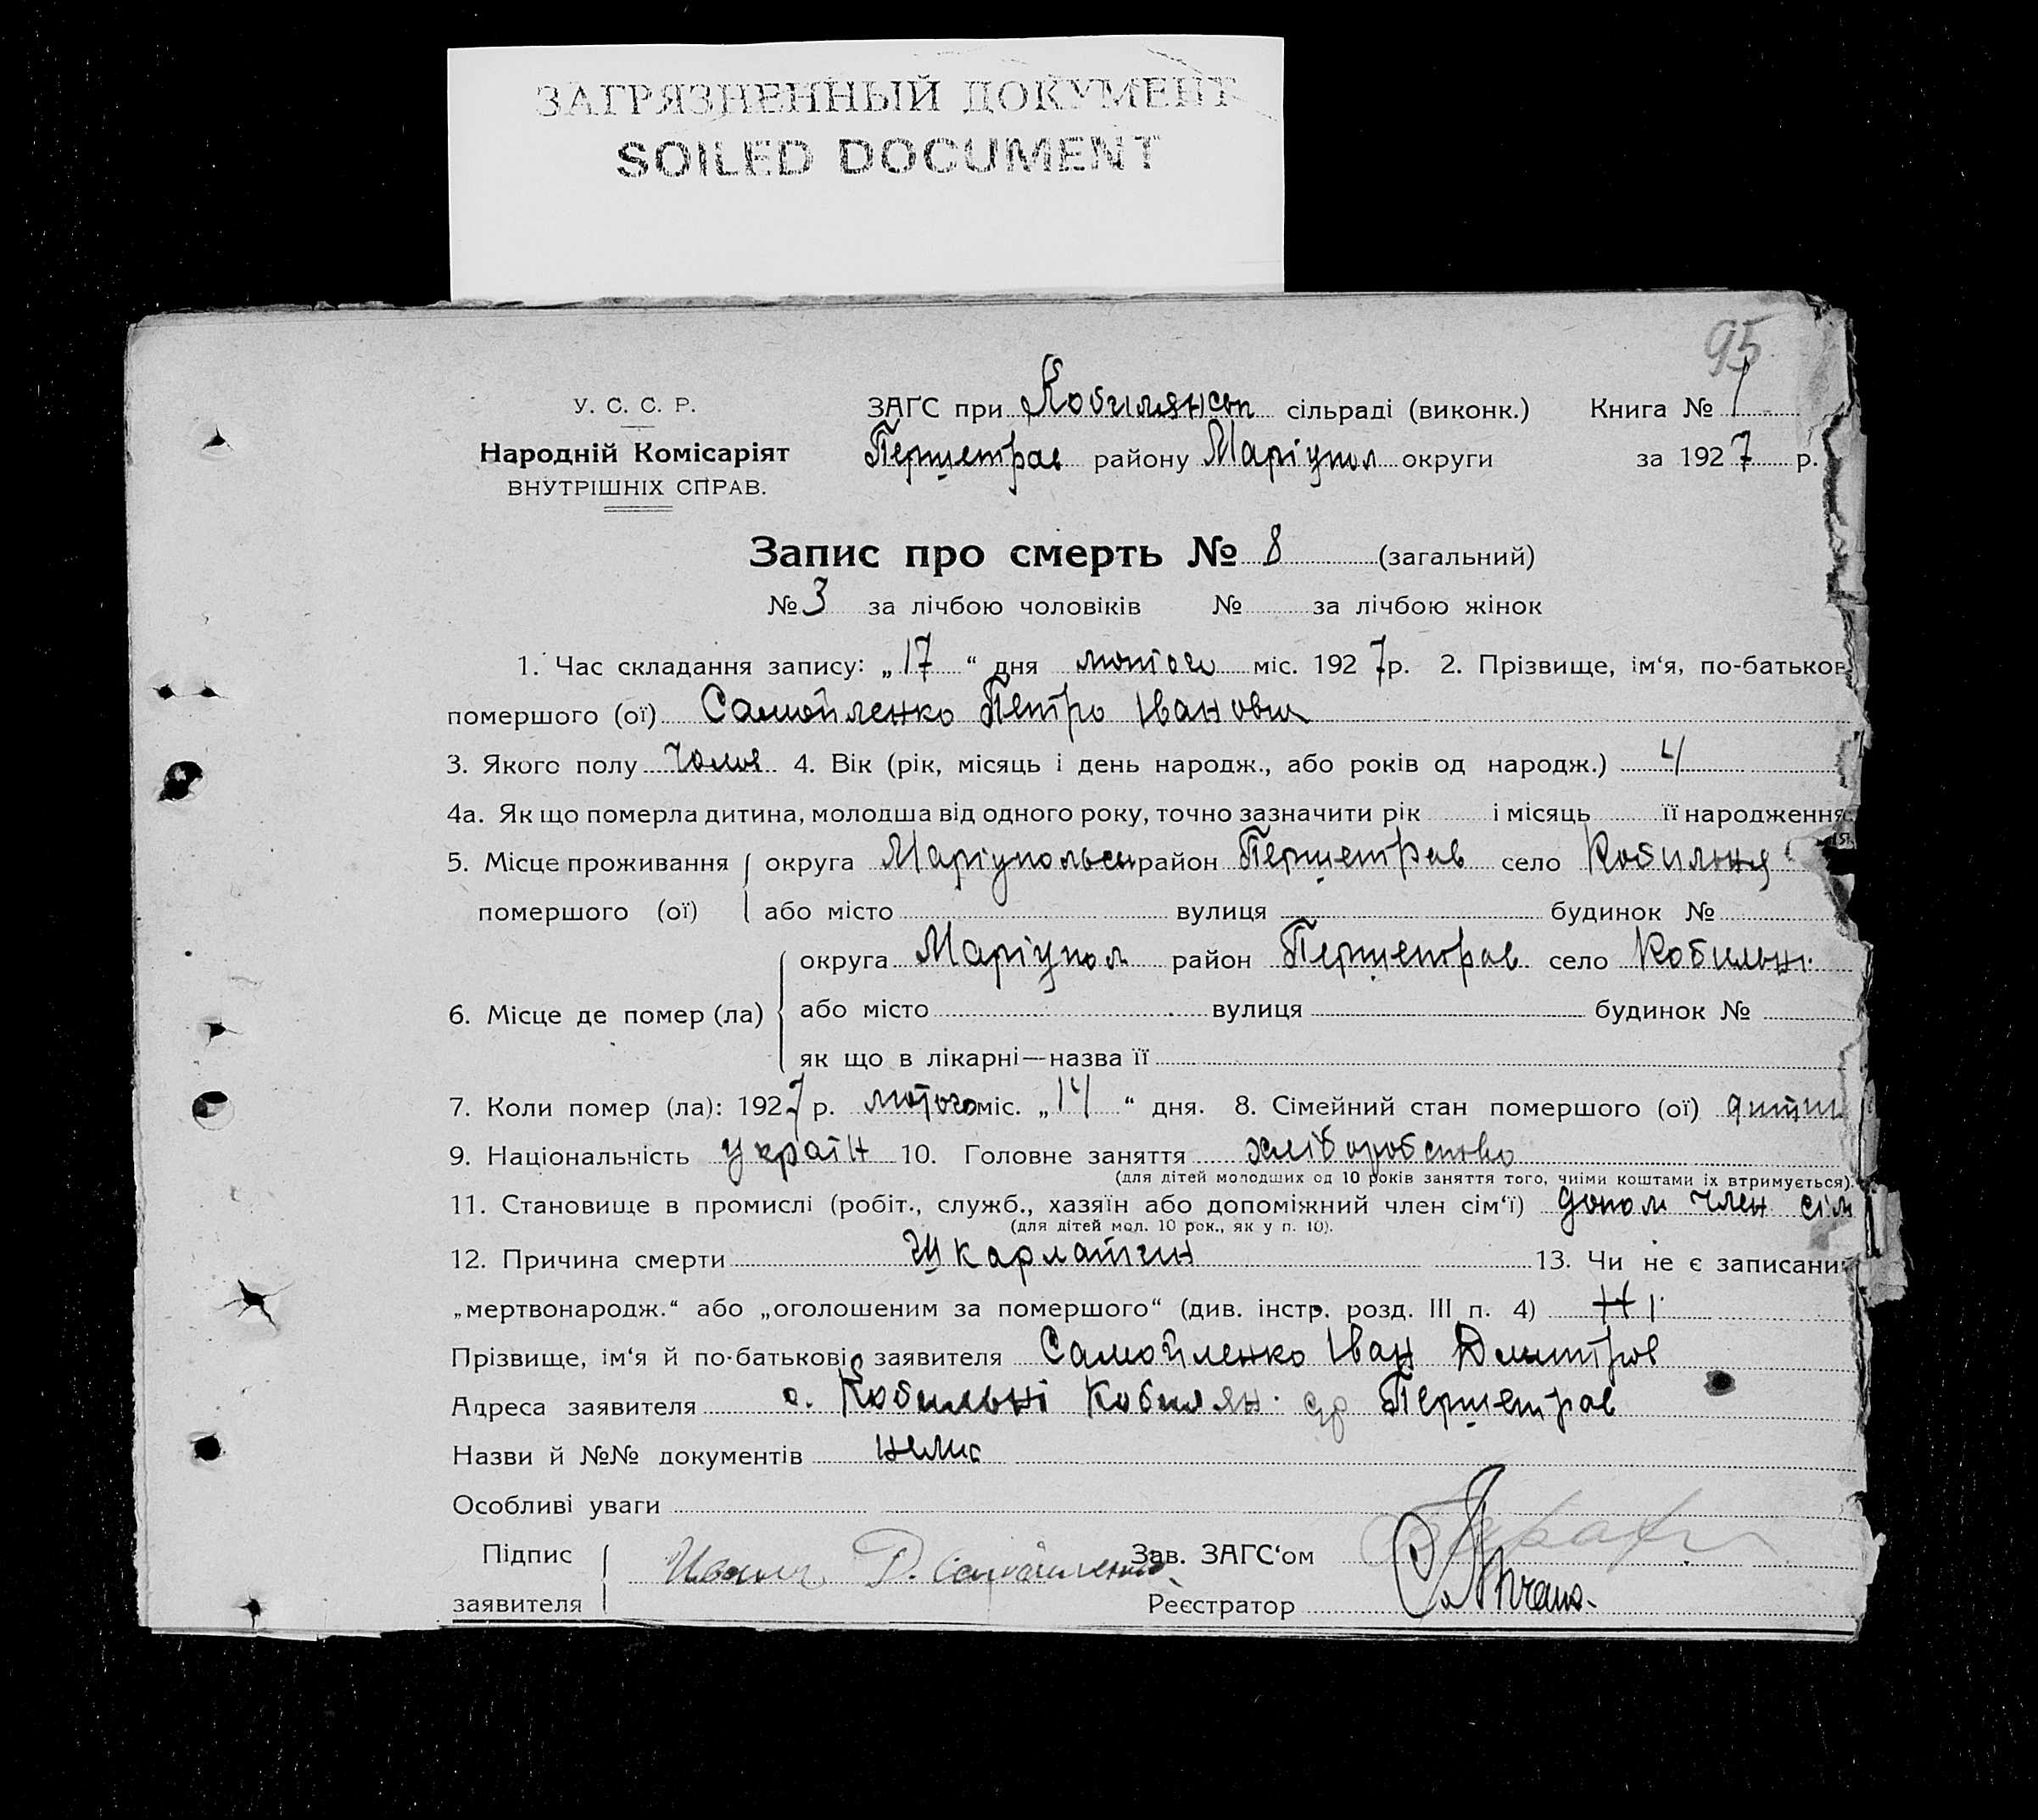 ЗАГРЯЗНЕННЫЙ ДОКУМЕНТ
SOILED DOCUMENT
95
У. С. С. Р.
Народній Комісаріят
ВНУТРІШНІХ СПРАВ.
ЗАҐС при Кобилянськ сільраді (виконк.) Книга № 1
Першетрав району Маріупол округи за 1927 р.
Запис про смерть № 8 (загальний)
№ 3 за лічбою чоловіків № за лічбою жінок
1. Час складання запису: „17“ дня лютого міс. 1927р. 2. Прізвище, ім‘я, по-батьков
помершого (ої) Самойленко Петро Іванович
3. Якого полу чолов 4. Вік (рік, місяць і день народж., або років од народж.) 4
4а. Як що померла дитина, молодша від одного року, точно зазначити рік і місяць її народження
5. Місце проживання округа Маріупольськ район Першетрав село Кобильня
помершого (ої) або місто вулиця будинок №
округа Маріупол район Першетрав село Кобильні
6. Місце де помер (ла) або місто вулиця будинок №
як що в лікарні—назва її
7. Коли помер (ла): 1927 р. лютого міс. „14“ дня. 8. Сімейний стан помершого (ої) дитин
9. Національність україн 10. Головне заняття хліборобство
(для дітей молодших од 10 років заняття того, чиїми коштами їх втримується).
11. Становище в промислі (робіт., служб., хазяїн або допоміжний член сім‘ї) допом член сім
(для дітей мол. 10 рок., як у п. 10).
12. Причина смерти Шкарлатин 13. Чи не є записаний
„мертвонародж.“ або „оголошеним за помершого“ (див. інстр. розд. III п. 4) Ні
Прізвище, ім‘я й по-батькові заявителя Самойленко Іван Дмитров
Адреса заявителя с. Кобильні Кобилян. ср Першетрав
Назви й №№ документів немає
Особливі уваги
Підпис
заявителя
Д. Самойленко
Зав. ЗАҐС‘ом
Реєстратор